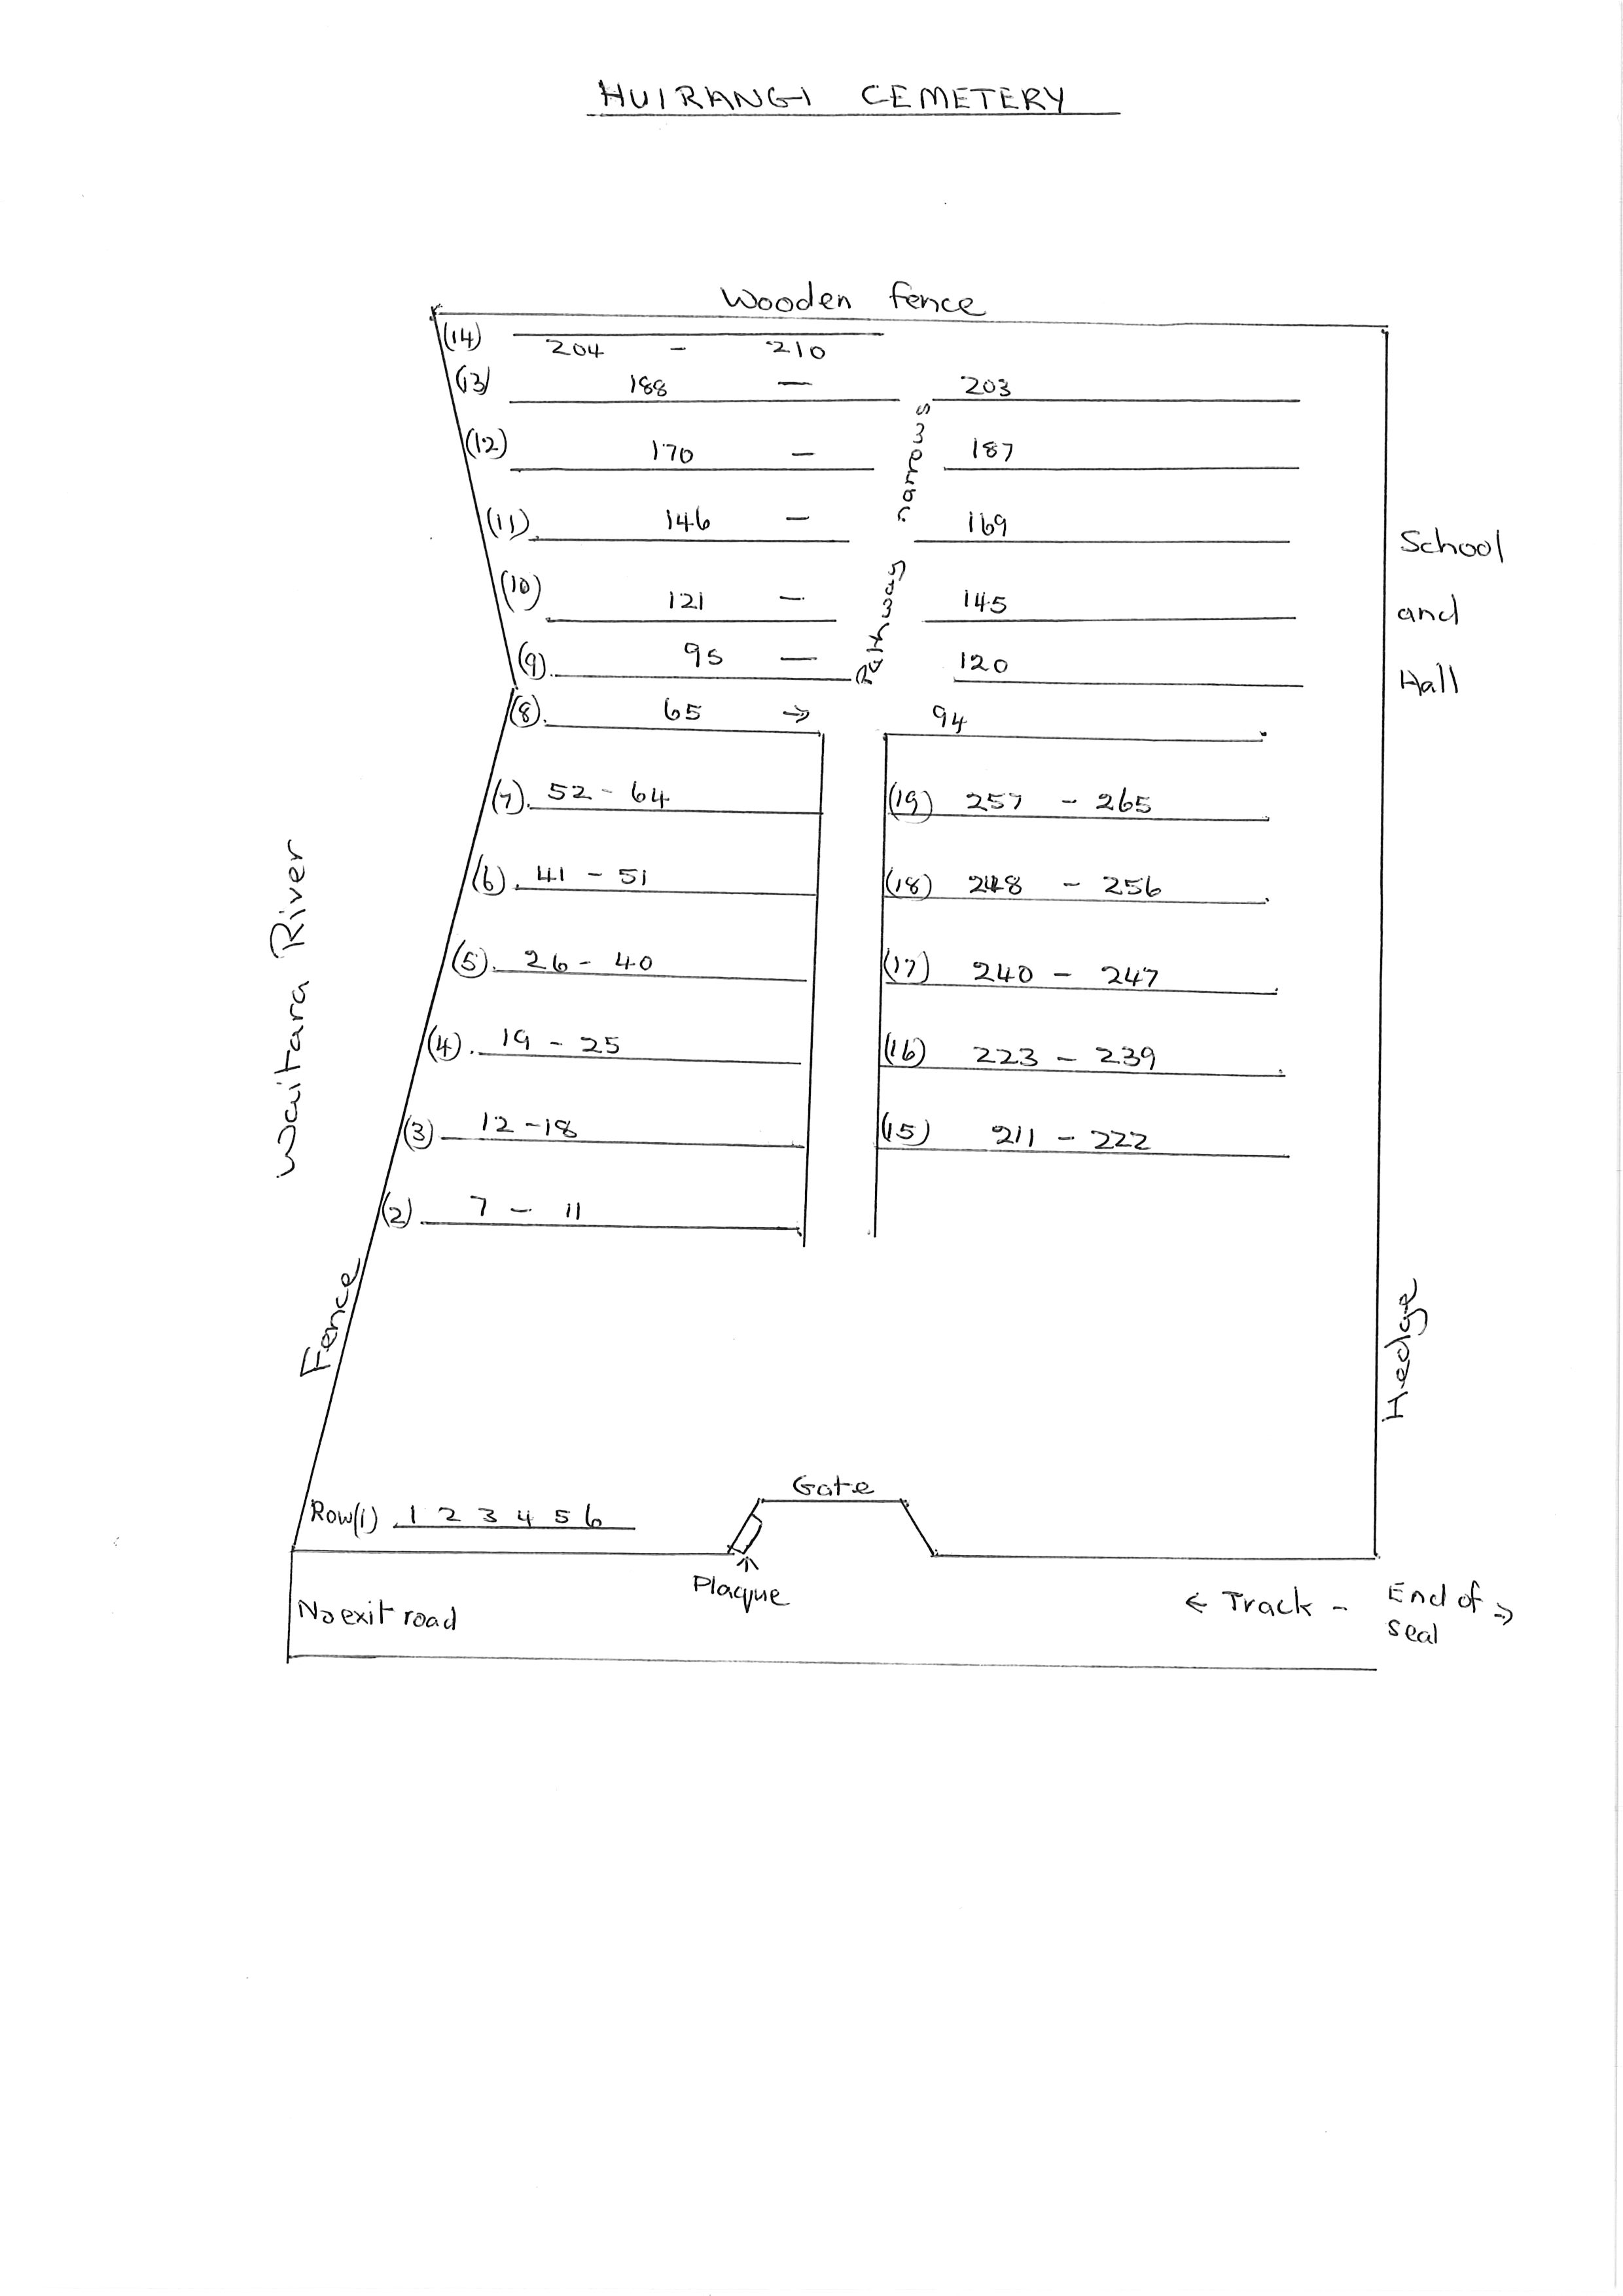 HUIRANGI CEMETERY
Wooden fence
(14) 204 - 210
(13) 188 — 203
(12) 170 — 187
(11) 146 — 169
(10) 121 — 145
(9) 95 — 120
Pathway narrows
(8). 65 → 94
School
and
Hall
(7). 52 - 64
(19) 257 - 265
(6). 41 - 51
(18) 248 - 256
(5). 26 - 40
(17) 240 - 247
(4). 19 - 25
(16) 223 - 239
(3) 12 - 18
(15) 211 - 222
(2) 7 - 11
Waitara River
Fence
Hedge
Gate
Row(1) 1 2 3 4 5 6
Plaque
No exit road
← Track - End of →
seal